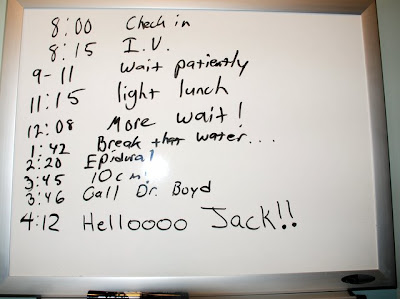 8:00 Check in
8:15 I.V.
9-11 Wait patiently
11:15 light lunch
12:08 More wait!
1:42 Break that water...
2:20 Epidural
3:45 10cm!
3:46 Call Dr. Boyd
4:12 Helloooo Jack!!